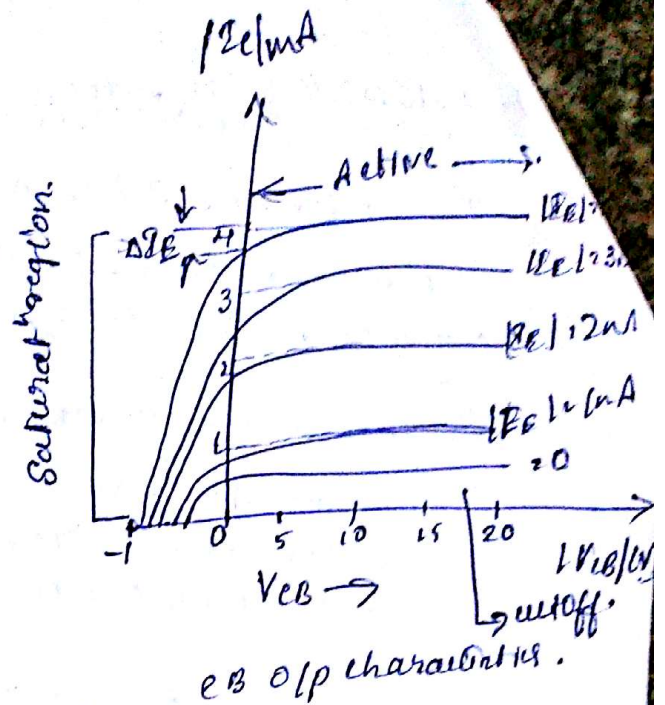 |Ic|mA
← Active →
Saturatn region.
ΔIE
4
3
2
1
|IE|=
|IE|=3
|IE|=2mA
|IE|=1mA
=0
-1 0 5 10 15 20
VCB →
|VCB|(V)
→ cutoff.
CB O/p characteristics.